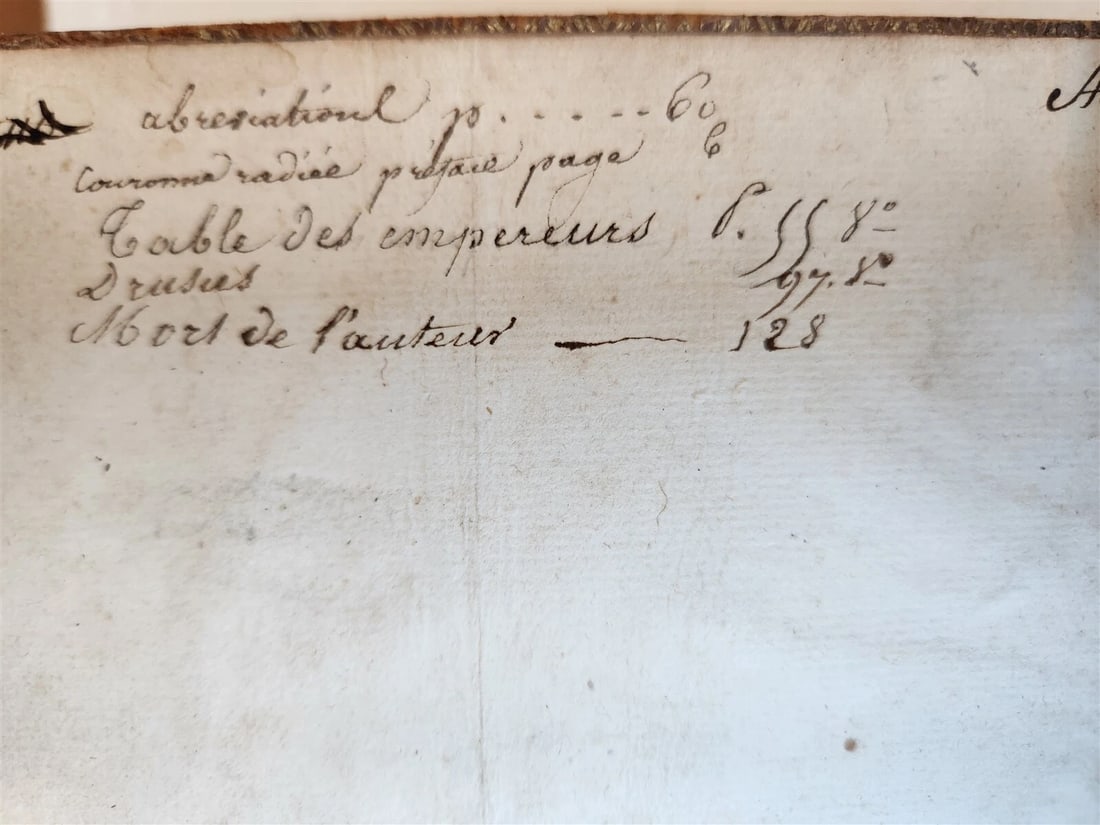 abreviations p. . . . . -- 60
couronne radiée préface page 6
Table des empereurs P. 55 vº
Drusus 97. vº
Mort de l'auteur — 128
A